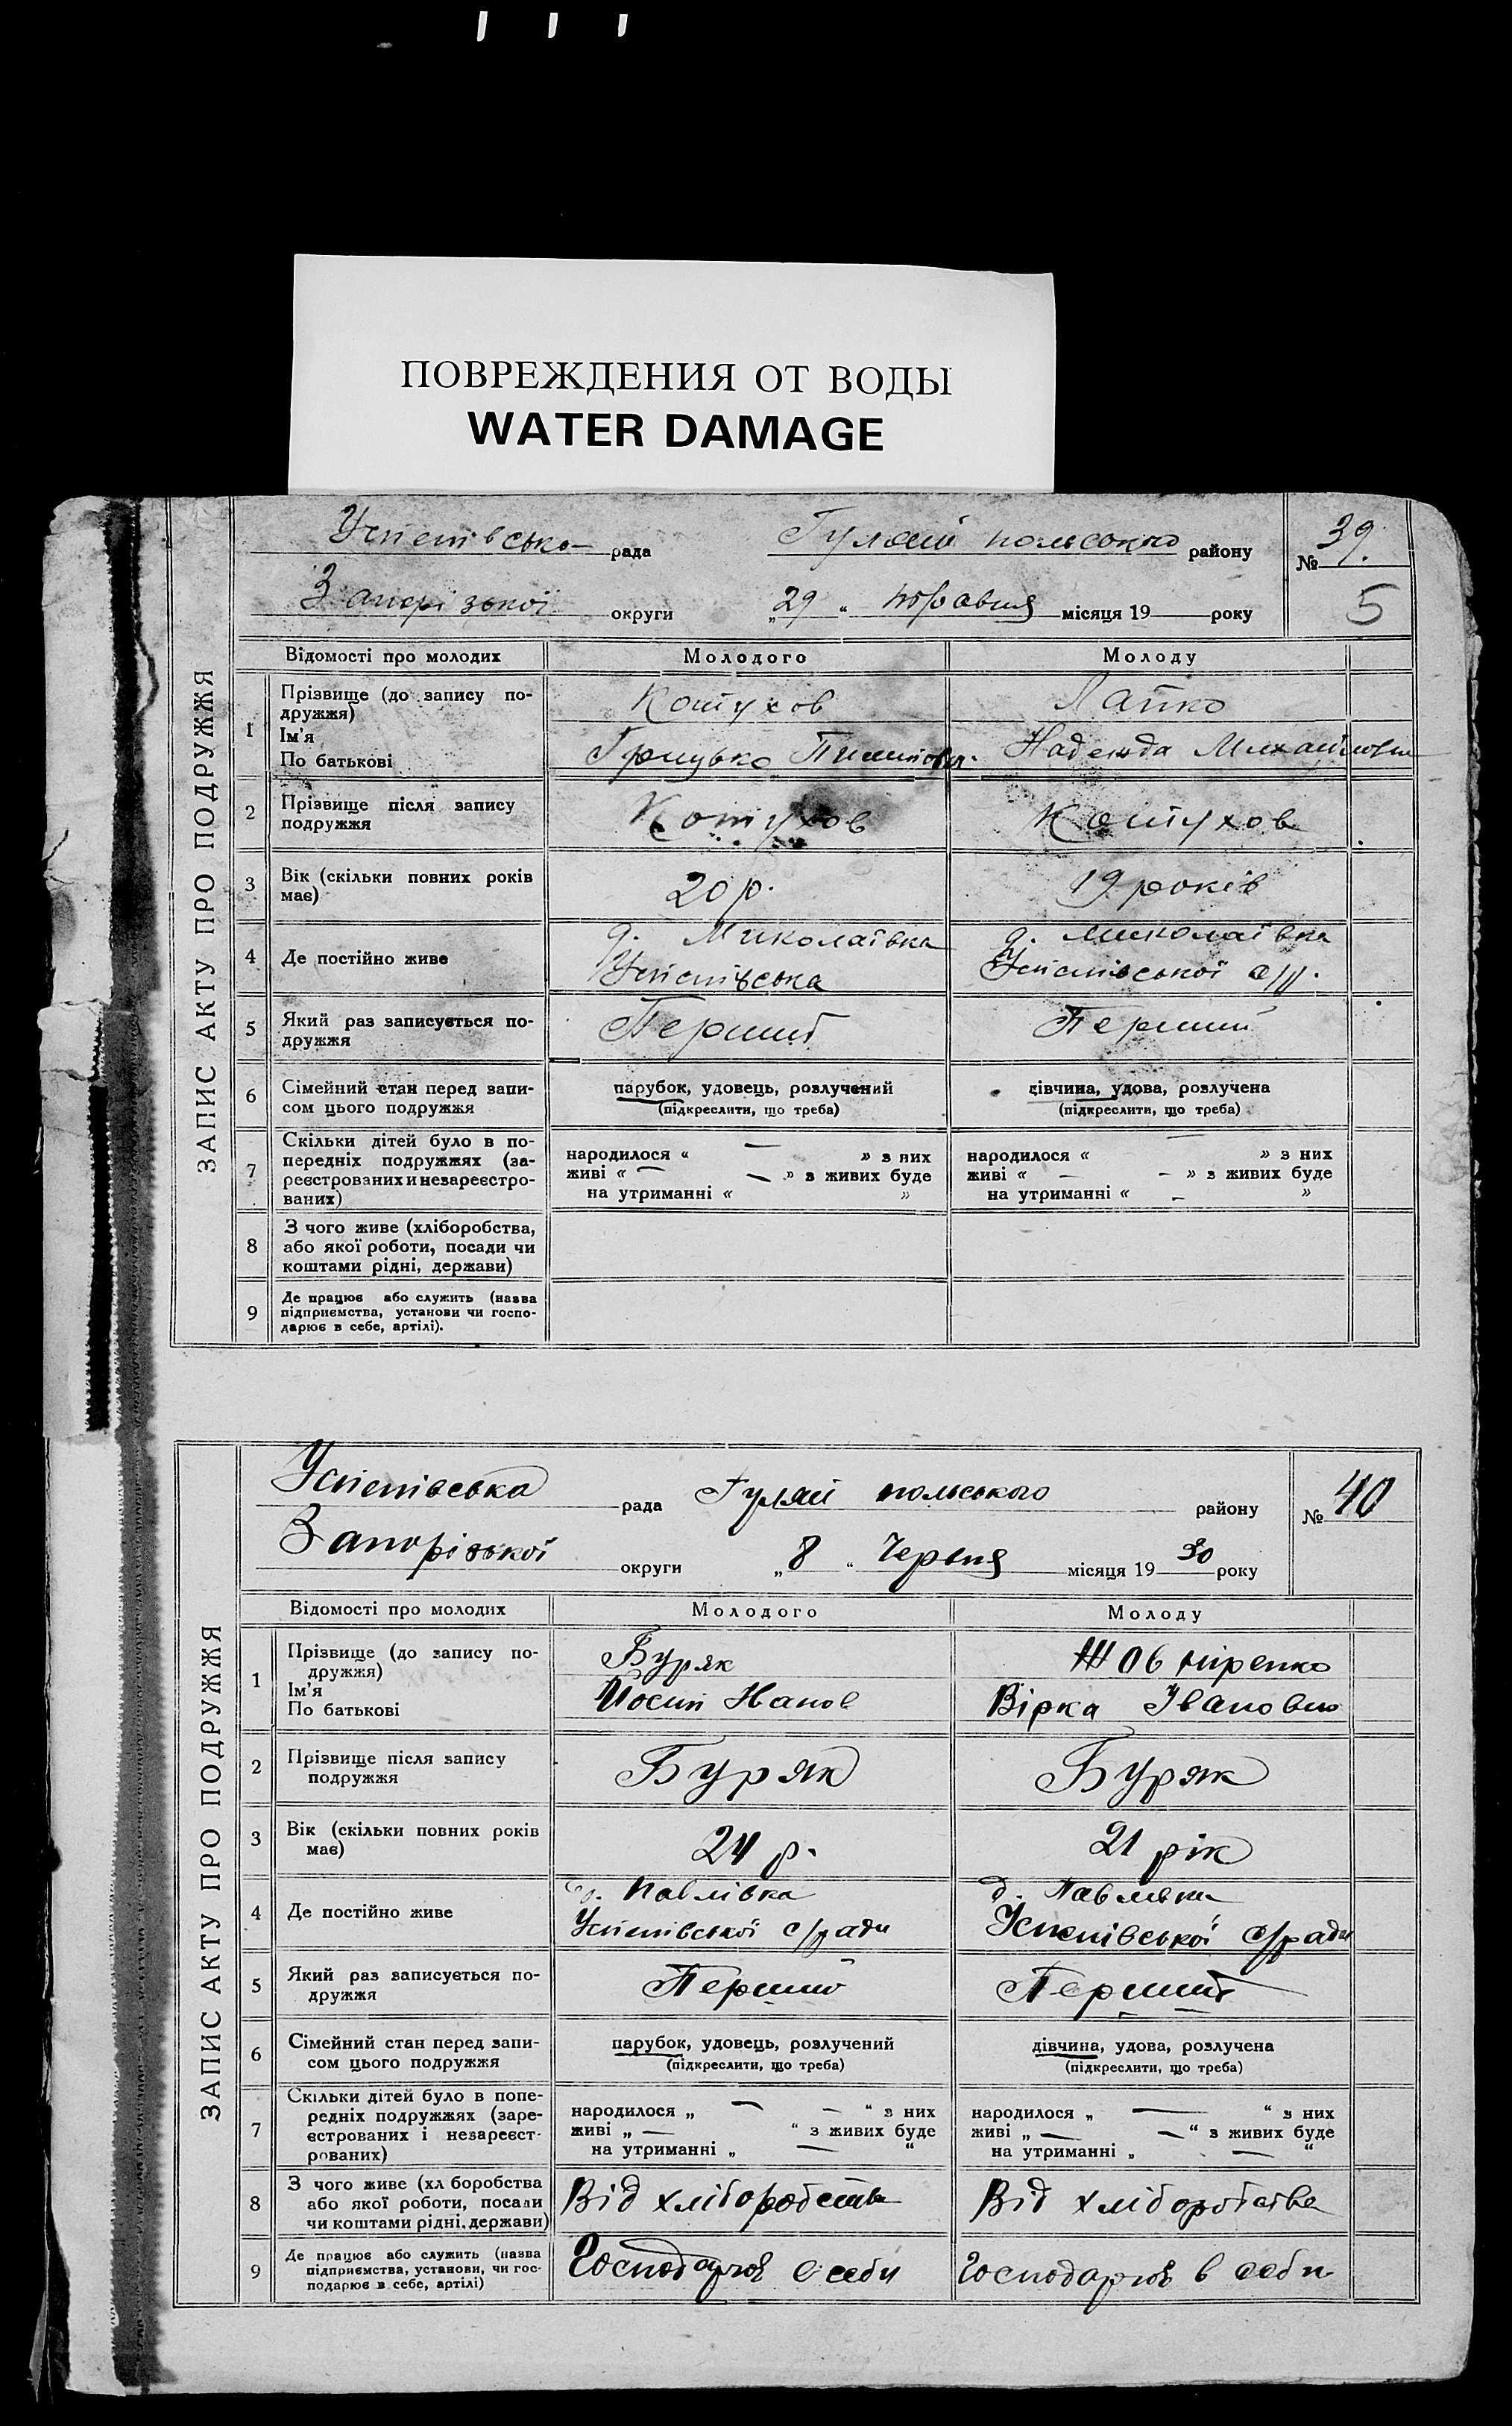 ПОВРЕЖДЕНИЯ ОТ ВОДЫ
WATER DAMAGE
ЗАПИС АКТУ ПРО ПОДРУЖЖЯ
Успенівська рада Гуляй польського району № 39.
Запорізької округи „29 “ місяця 19 року 5
Відомості про молодих Молодого Молоду
1 Прізвище (до запису по-
дружжя) Котухов Лапко
Ім’я
По батькові Грицько Пилипович. Надежда Михайловна
2 Прізвище після запису
подружжя Котухов Котухов
3 Вік (скільки повних років
має) 20 р. 19 років
4 Де постійно живе д. Миколаївка д. Миколаївка
Успенівська Успенівської с/р.
5 Який раз записується по-
дружжя Перший Перший
6 Сімейний стан перед запи-
сом цього подружжя парубок, удовець, розлучений дівчина, удова, розлучена
(підкреслити, що треба) (підкреслити, що треба)
7 Скільки дітей було в по-
передніх подружжях (за-
реєстрованих и незареєстро-
ваних)
народилося « — » з них народилося « — » з них
живі « — — » з живих буде живі « — — » з живих буде
на утриманні « » на утриманні « — »
8 З чого живе (хліборобства,
або якої роботи, посади чи
коштами рідні, держави)
9 Де працює або служить (назва
підприємства, установи чи госпо-
дарює в себе, артілі).
ЗАПИС АКТУ ПРО ПОДРУЖЖЯ
Успенівська рада Гуляй польського району № 40
Запорізької округи „8 “ Червня місяця 19 30 року
Відомості про молодих Молодого Молоду
1 Прізвище (до запису по-
дружжя) Буряк
Ім’я
По батькові Йосип Іванов Вірка Івановна
2 Прізвище після запису
подружжя Буряк Буряк
3 Вік (скільки повних років
має) 24 р. 21 рік
4 Де постійно живе д. Павлівка д. Павлівка
Успенівської с/ради Успенівської с/ради
5 Який раз записується по-
дружжя Перший Перший
6 Сімейний стан перед запи-
сом цього подружжя парубок, удовець, розлучений дівчина, удова, розлучена
(підкреслити, що треба) (підкреслити, що треба)
7 Скільки дітей було в попе-
редніх подружжях (заре-
єстрованих і незареєст-
рованих)
народилося „ — — “ з них народилося „ — “ з них
живі „ — “ з живих буде живі „ — — “ з живих буде
на утриманні „ — “ на утриманні „ — “
8 З чого живе (хл боробства
або якої роботи, посади
чи коштами рідні, держави) Від хліборобства Від хліборобства
9 Де працює або служить (назва
підприємства, установи, чи гос-
подарює в себе, артілі) Господарює в себи Господарює в себи